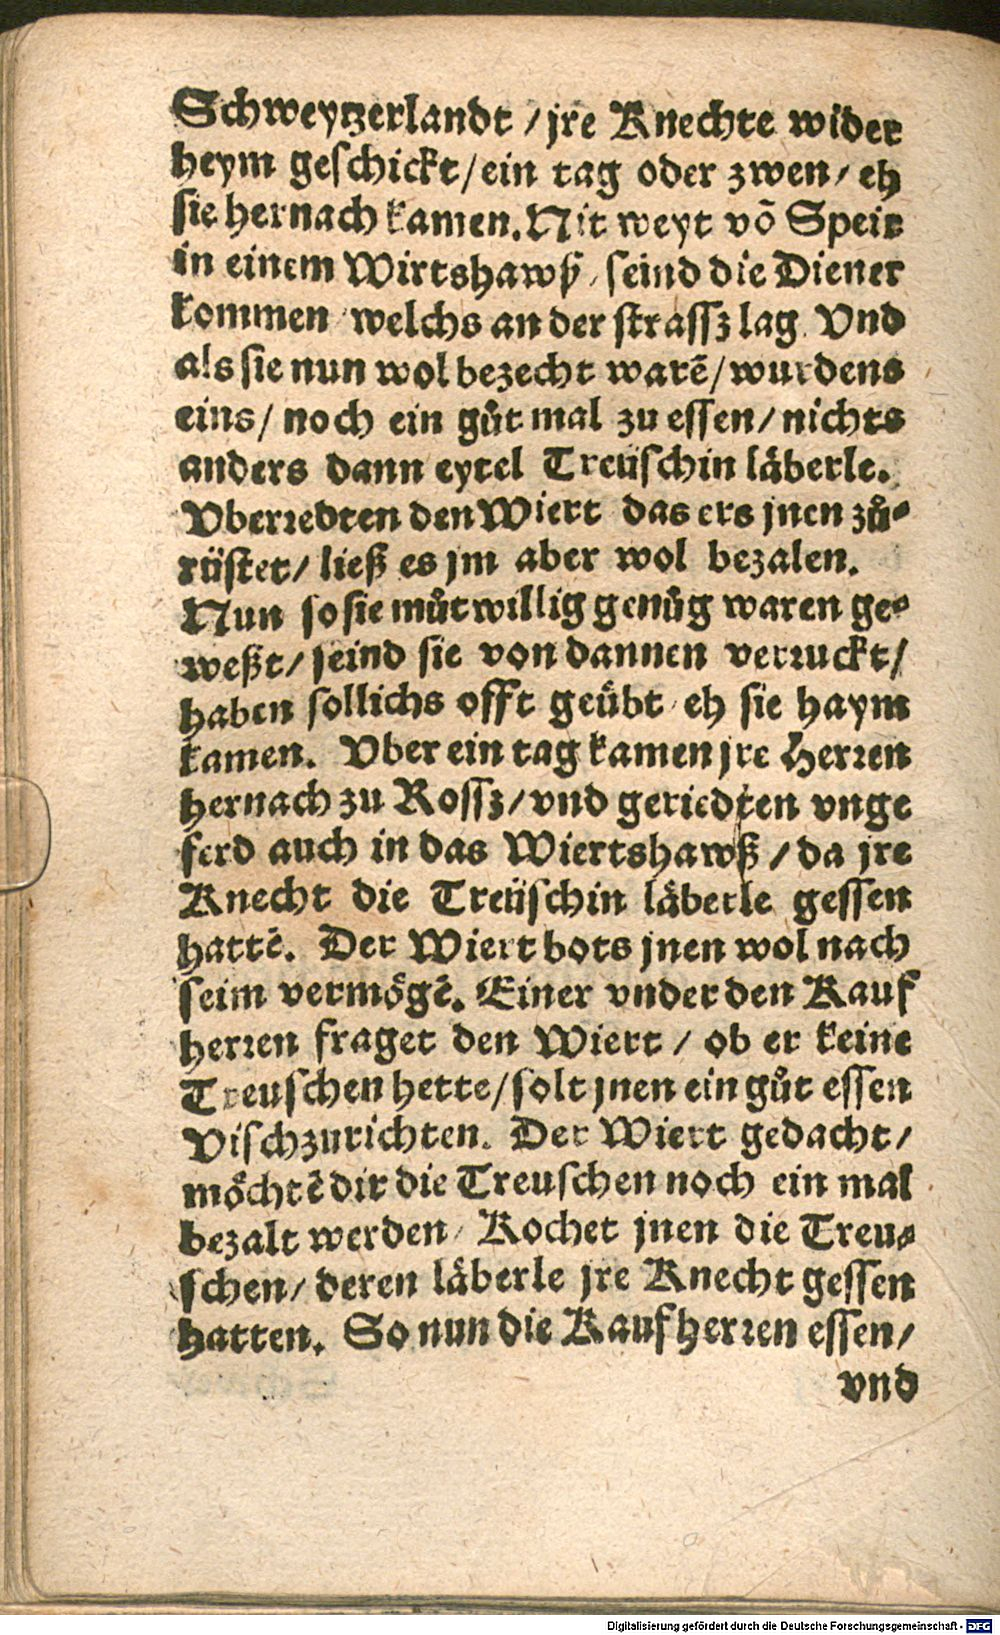 Schweytzerlandt / jre Knechte wider
heym geschickt / ein tag oder zwen / eh
sie hernach kamen. Nit weyt võ Speir
in einem Wirtshawß / seind die Diener
kommen welchs an der strassz lag. Vnd
als sie nun wol bezecht warẽ / wurdens
eins / noch ein gůt mal zu essen / nichts
anders dann eytel Treüschin låberle.
Vberredten den Wiert das ers jnen zů-
rüstet / ließ es jm aber wol bezalen.
Nun so sie můtwillig genůg waren ge-
weßt / seind sie von dannen verruckt /
haben sollichs offt geübt / eh sie haym
kamen. Vber ein tag kamen jre Herren
hernach zu Rossz / vnd geriedten vnge
ferd auch in das Wiertshawß / da jre
Knecht die Treüschin låberle gessen
hattẽ. Der Wiert bots jnen wol nach
seim vermögẽ. Einer vnder den Kauf
herren fraget den Wiert / ob er keine
Treuschen hette / solt jnen ein gůt essen
Visch zurichten. Der Wiert gedacht /
möchtẽ dir die Treuschen noch ein mal
bezalt werden / Kochet jnen die Treu-
schen / deren låberle jre Knecht gessen
hatten. So nun die Kaufherren essen /
vnd
Digitalisierung gefördert durch die Deutsche Forschungsgemeinschaft - DFG